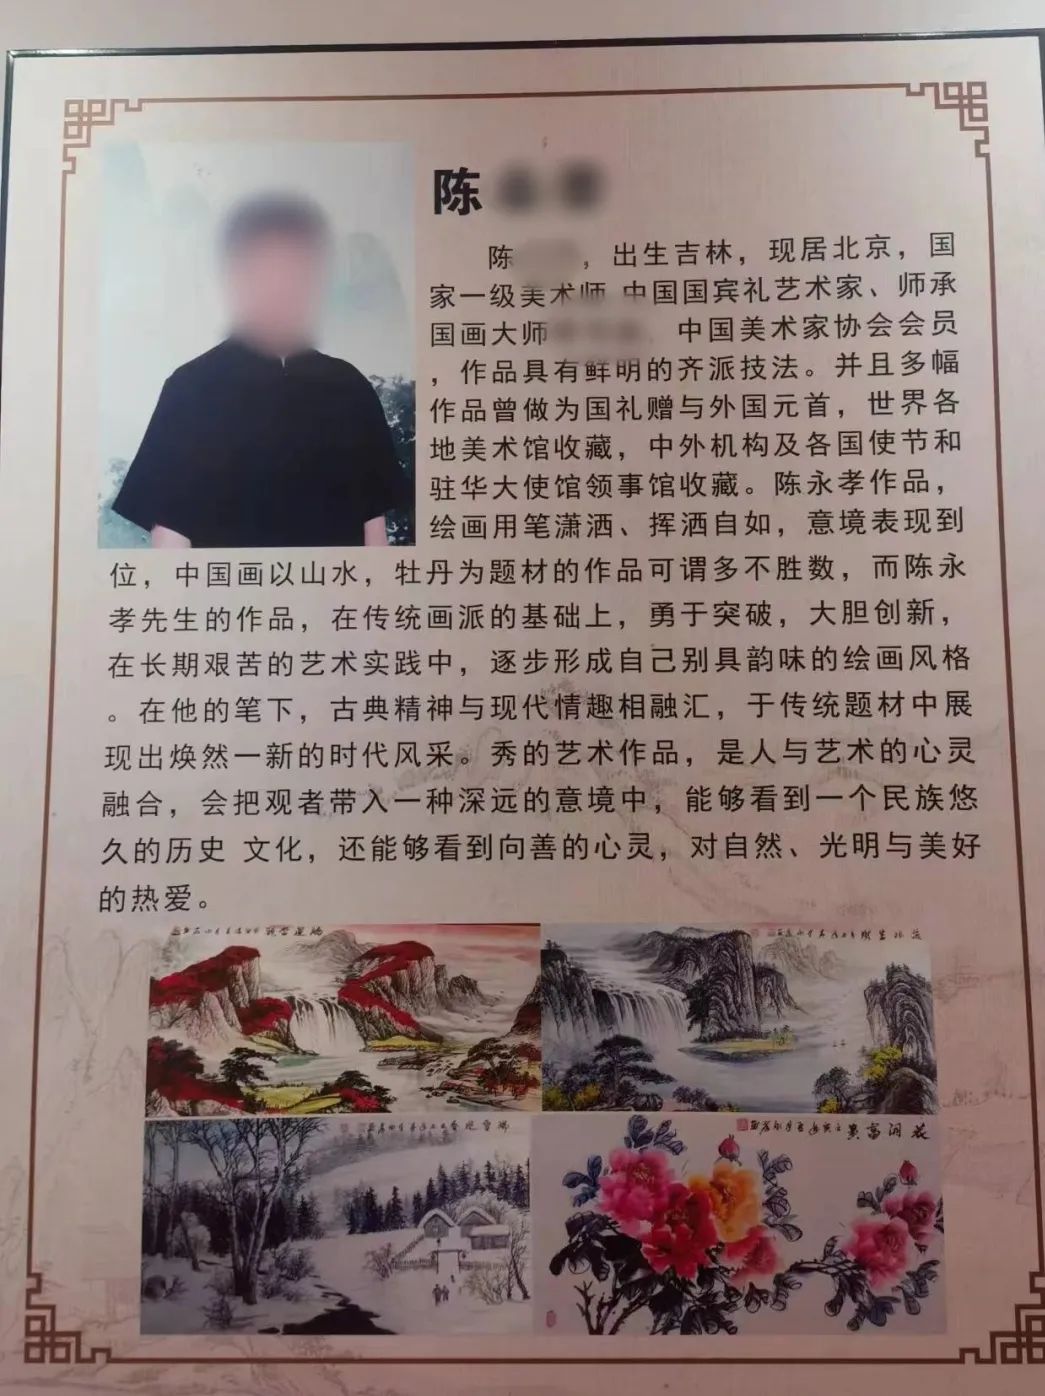 陈
陈，出生吉林，现居北京，国
家一级美术师 中国国宾礼艺术家、师承
国画大师 中国美术家协会会员
，作品具有鲜明的齐派技法。并且多幅
作品曾做为国礼赠与外国元首，世界各
地美术馆收藏，中外机构及各国使节和
驻华大使馆领事馆收藏。陈永孝作品，
绘画用笔潇洒、挥洒自如，意境表现到
位，中国画以山水，牡丹为题材的作品可谓多不胜数，而陈永
孝先生的作品，在传统画派的基础上，勇于突破，大胆创新，
在长期艰苦的艺术实践中，逐步形成自己别具韵味的绘画风格
。在他的笔下，古典精神与现代情趣相融汇，于传统题材中展
现出焕然一新的时代风采。秀的艺术作品，是人与艺术的心灵
融合，会把观者带入一种深远的意境中，能够看到一个民族悠
久的历史 文化，还能够看到向善的心灵，对自然、光明与美好
的热爱。